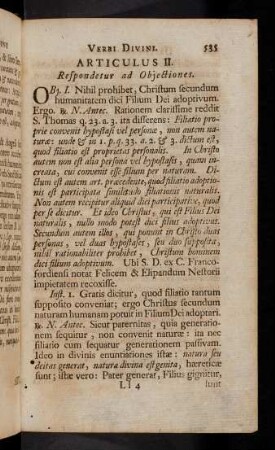 VERBI DIVINI. 535
ARTICULUS II.
Respondetur ad Objectiones.
OBj. I. Nihil prohibet, Christum secundum
humanitatem dici Filium Dei adoptivum.
Ergo. ℞. N. Antec. Rationem clarissime reddit
S. Thomas q. 23. a. 3. ita disserens: Filiatio pro-
prie convenit hypostasi vel personæ, non autem natu-
ræ: unde & in 1. p. q. 33. a. 2. & 3. dictum est,
quod filiatio est proprietas personalis. In Christo
autem non est alia persona vel hypostasis, quam in-
creata, cui convenit esse filium per naturam. Di-
ctum est autem art. præcedente, quod filiatio adoptio-
nis est participata similitudo filiationis naturalis.
Non autem recipitur aliquid dici participative, quod
per se dicitur. Et ideo Christus, qui est Filius Dei
naturalis, nullo modo potest dici filius adoptivus.
Secundum autem illos, qui ponunt in Christo duas
personas, vel duas hypostases, seu duo supposita,
nihil rationabiliter prohibet, Christum hominem
dici filium adoptivum. Ubi S. D. ex C. Franco-
fordiensi notat Felicem & Elipandum Nestorii
impietatem recoxisse.
Inst. 1. Gratis dicitur, quod filiatio tantum
supposito conveniat; ergo Christus secundum
naturam humanam potuit in Filium Dei adoptari.
℞. N. Antec. Sicut paternitas, quia generatio-
nem sequitur, non convenit naturæ: ita nec
filiatio cum sequatur generationem passivam.
Ideo in divinis enuntiationes istæ: natura seu
deitas generat, natura divina est genita, hæreticæ
sunt; istæ vero: Pater generat, Filius gignitur,
Ll 4 sunt